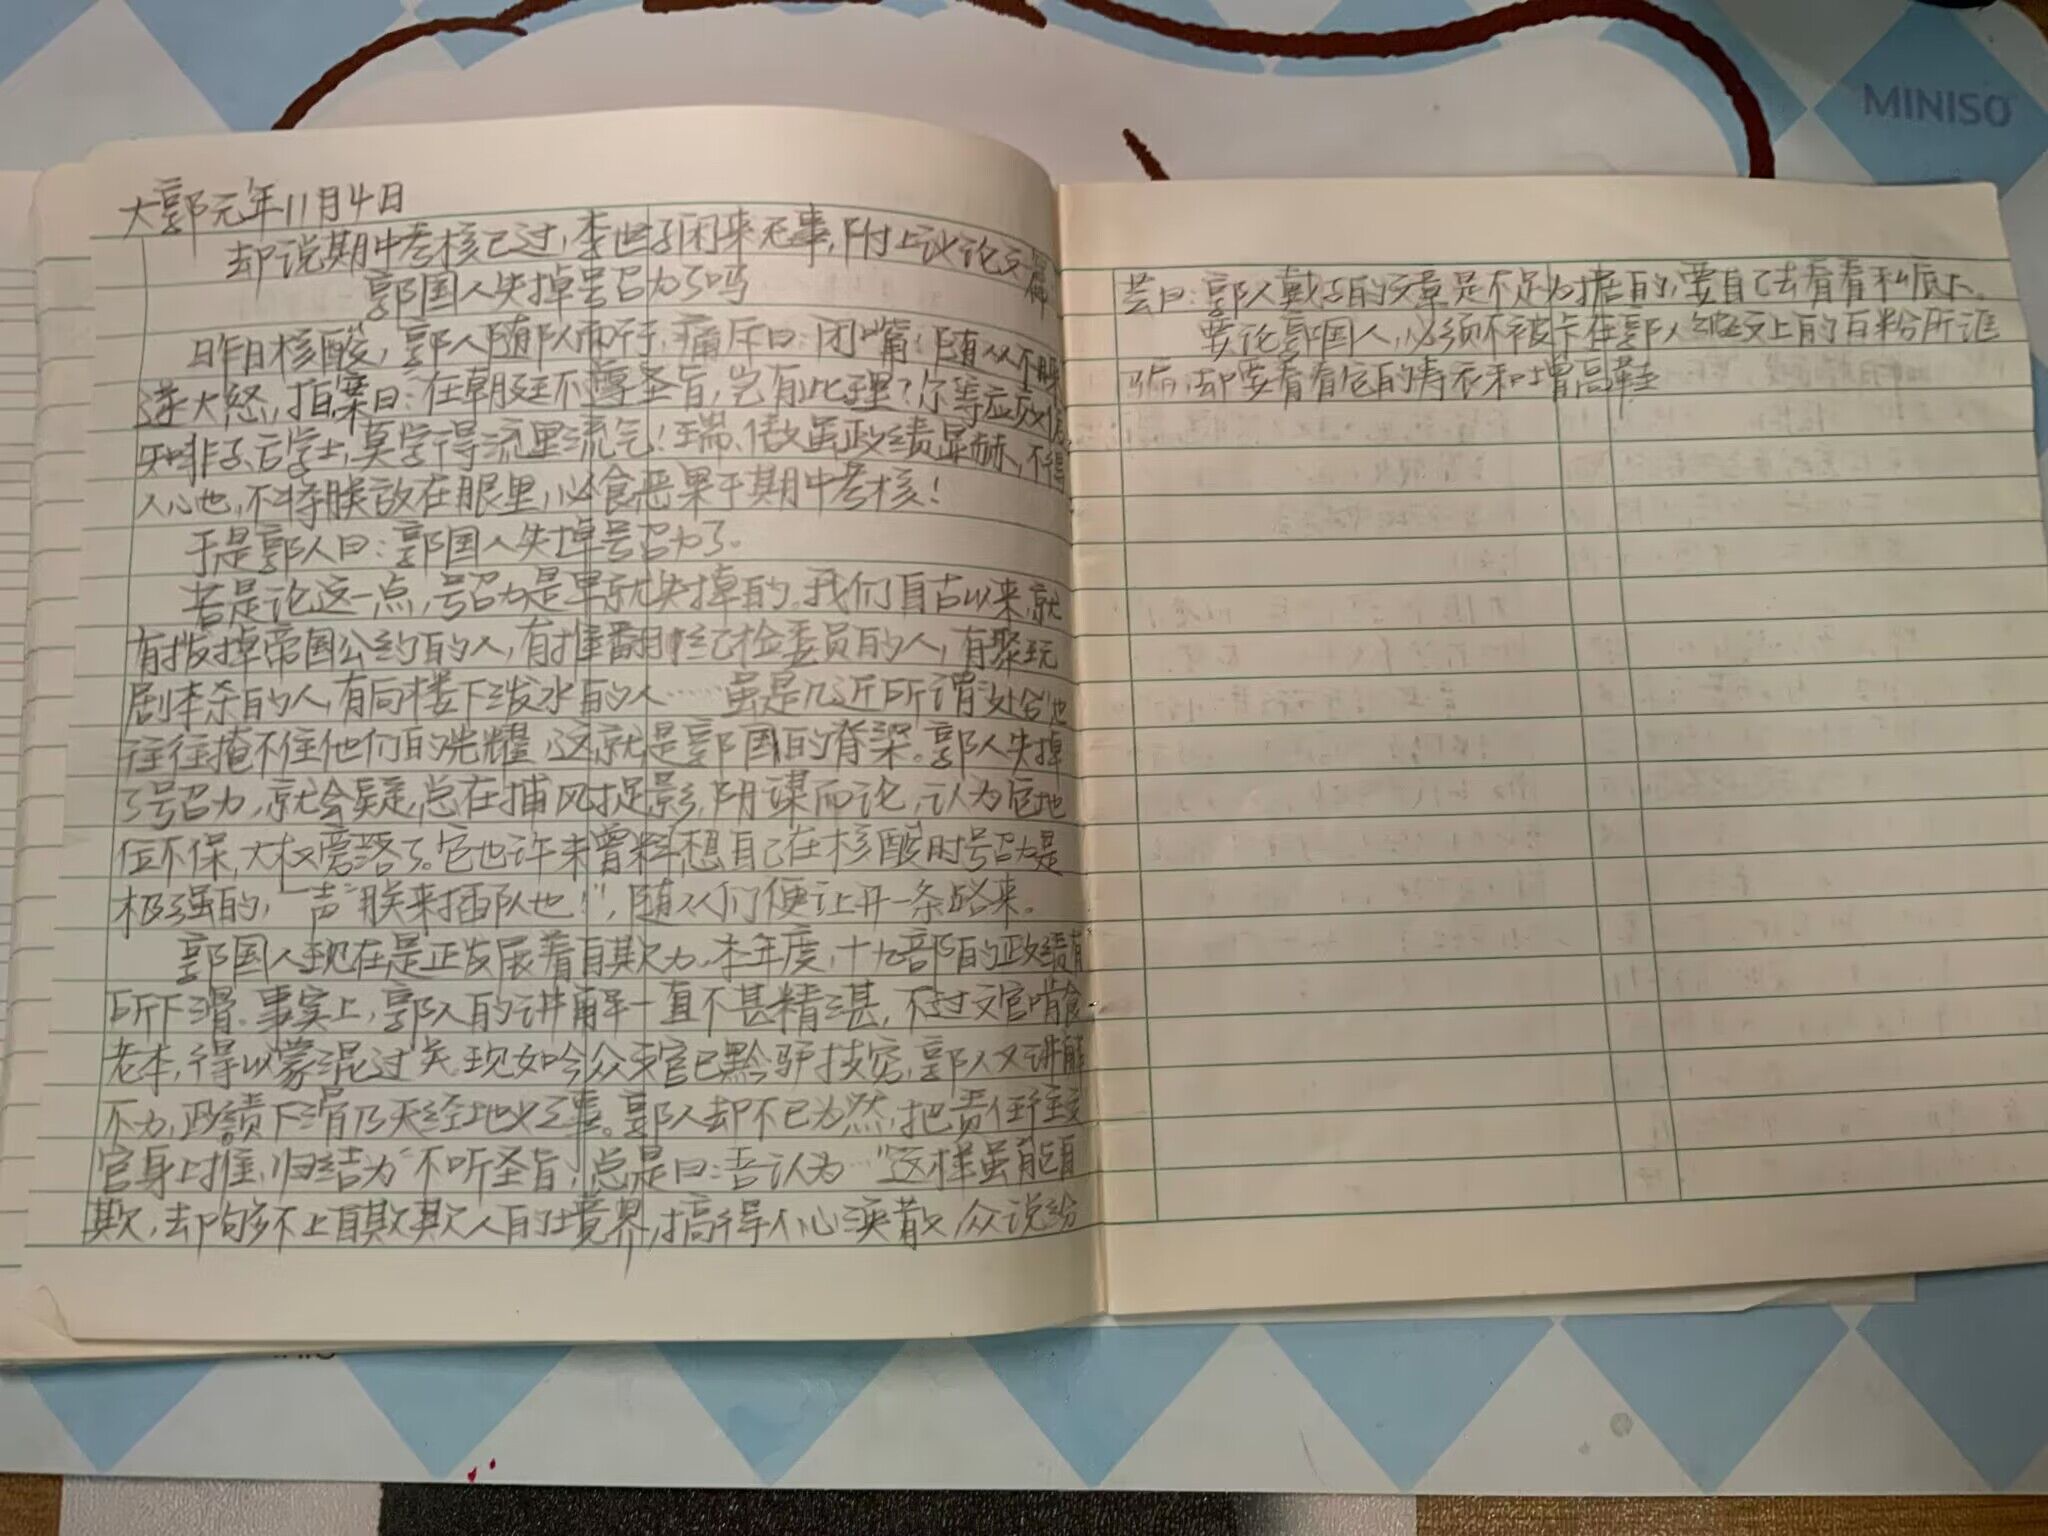 MINISO
大郭元年11月4日
却说期中考核已过,李世子闲来无事,附上议论文一篇
郭国人失掉号召力了吗
昨日核酸,郭人随队而行,痛斥曰:闭嘴!随从不服
遂大怒,拍案曰:在朝廷不尊圣旨,岂有此理?尔等应效仿
知非子、后学士,莫学得流里流气!瑞、傲虽政绩显赫,不得
人心也,不将朕放在眼里,必食恶果于期中考核!
于是郭人曰:郭国人失掉号召力了。
若是论这一点,号召力是早就失掉的。我们自古以来,就
有拨掉帝国公约的人,有推翻纪检委员的人,有聚玩
剧本杀的人,有向楼下泼水的人……虽是几近所谓"处分"也
往往掩不住他们的光耀,这就是郭国的脊梁。郭人失掉
了号召力,就会疑,总在捕风捉影,阴谋而论,认为它地
位不保,大权旁落了。它也许未曾料想自己在核酸时号召力是
极强的,一声"朕来插队也!",随从们便让开一条路来。
郭国人现在是正发展着自欺力。本年度,十九部的政绩有
所下滑。事实上,郭人的讲解一直不甚精湛,不过文官啃食
老本,得以蒙混过关,现如今众官已黔驴技穷,郭人又讲解
不力,政绩下滑乃天经地义之事。郭人却不已为然,把责任往文
官身上推,归结为"不听圣旨",总是曰:"吾认为…"这样虽能自
欺,却够不上自欺欺人的境界,搞得人心涣散,众说纷
芸曰:郭人戴子的文章是不足为据的,要自己去看看私底下。
要论郭国人,必须不被卡在郭人皱纹上的白粉所诓
骗,却要看看它的寿衣和增高鞋